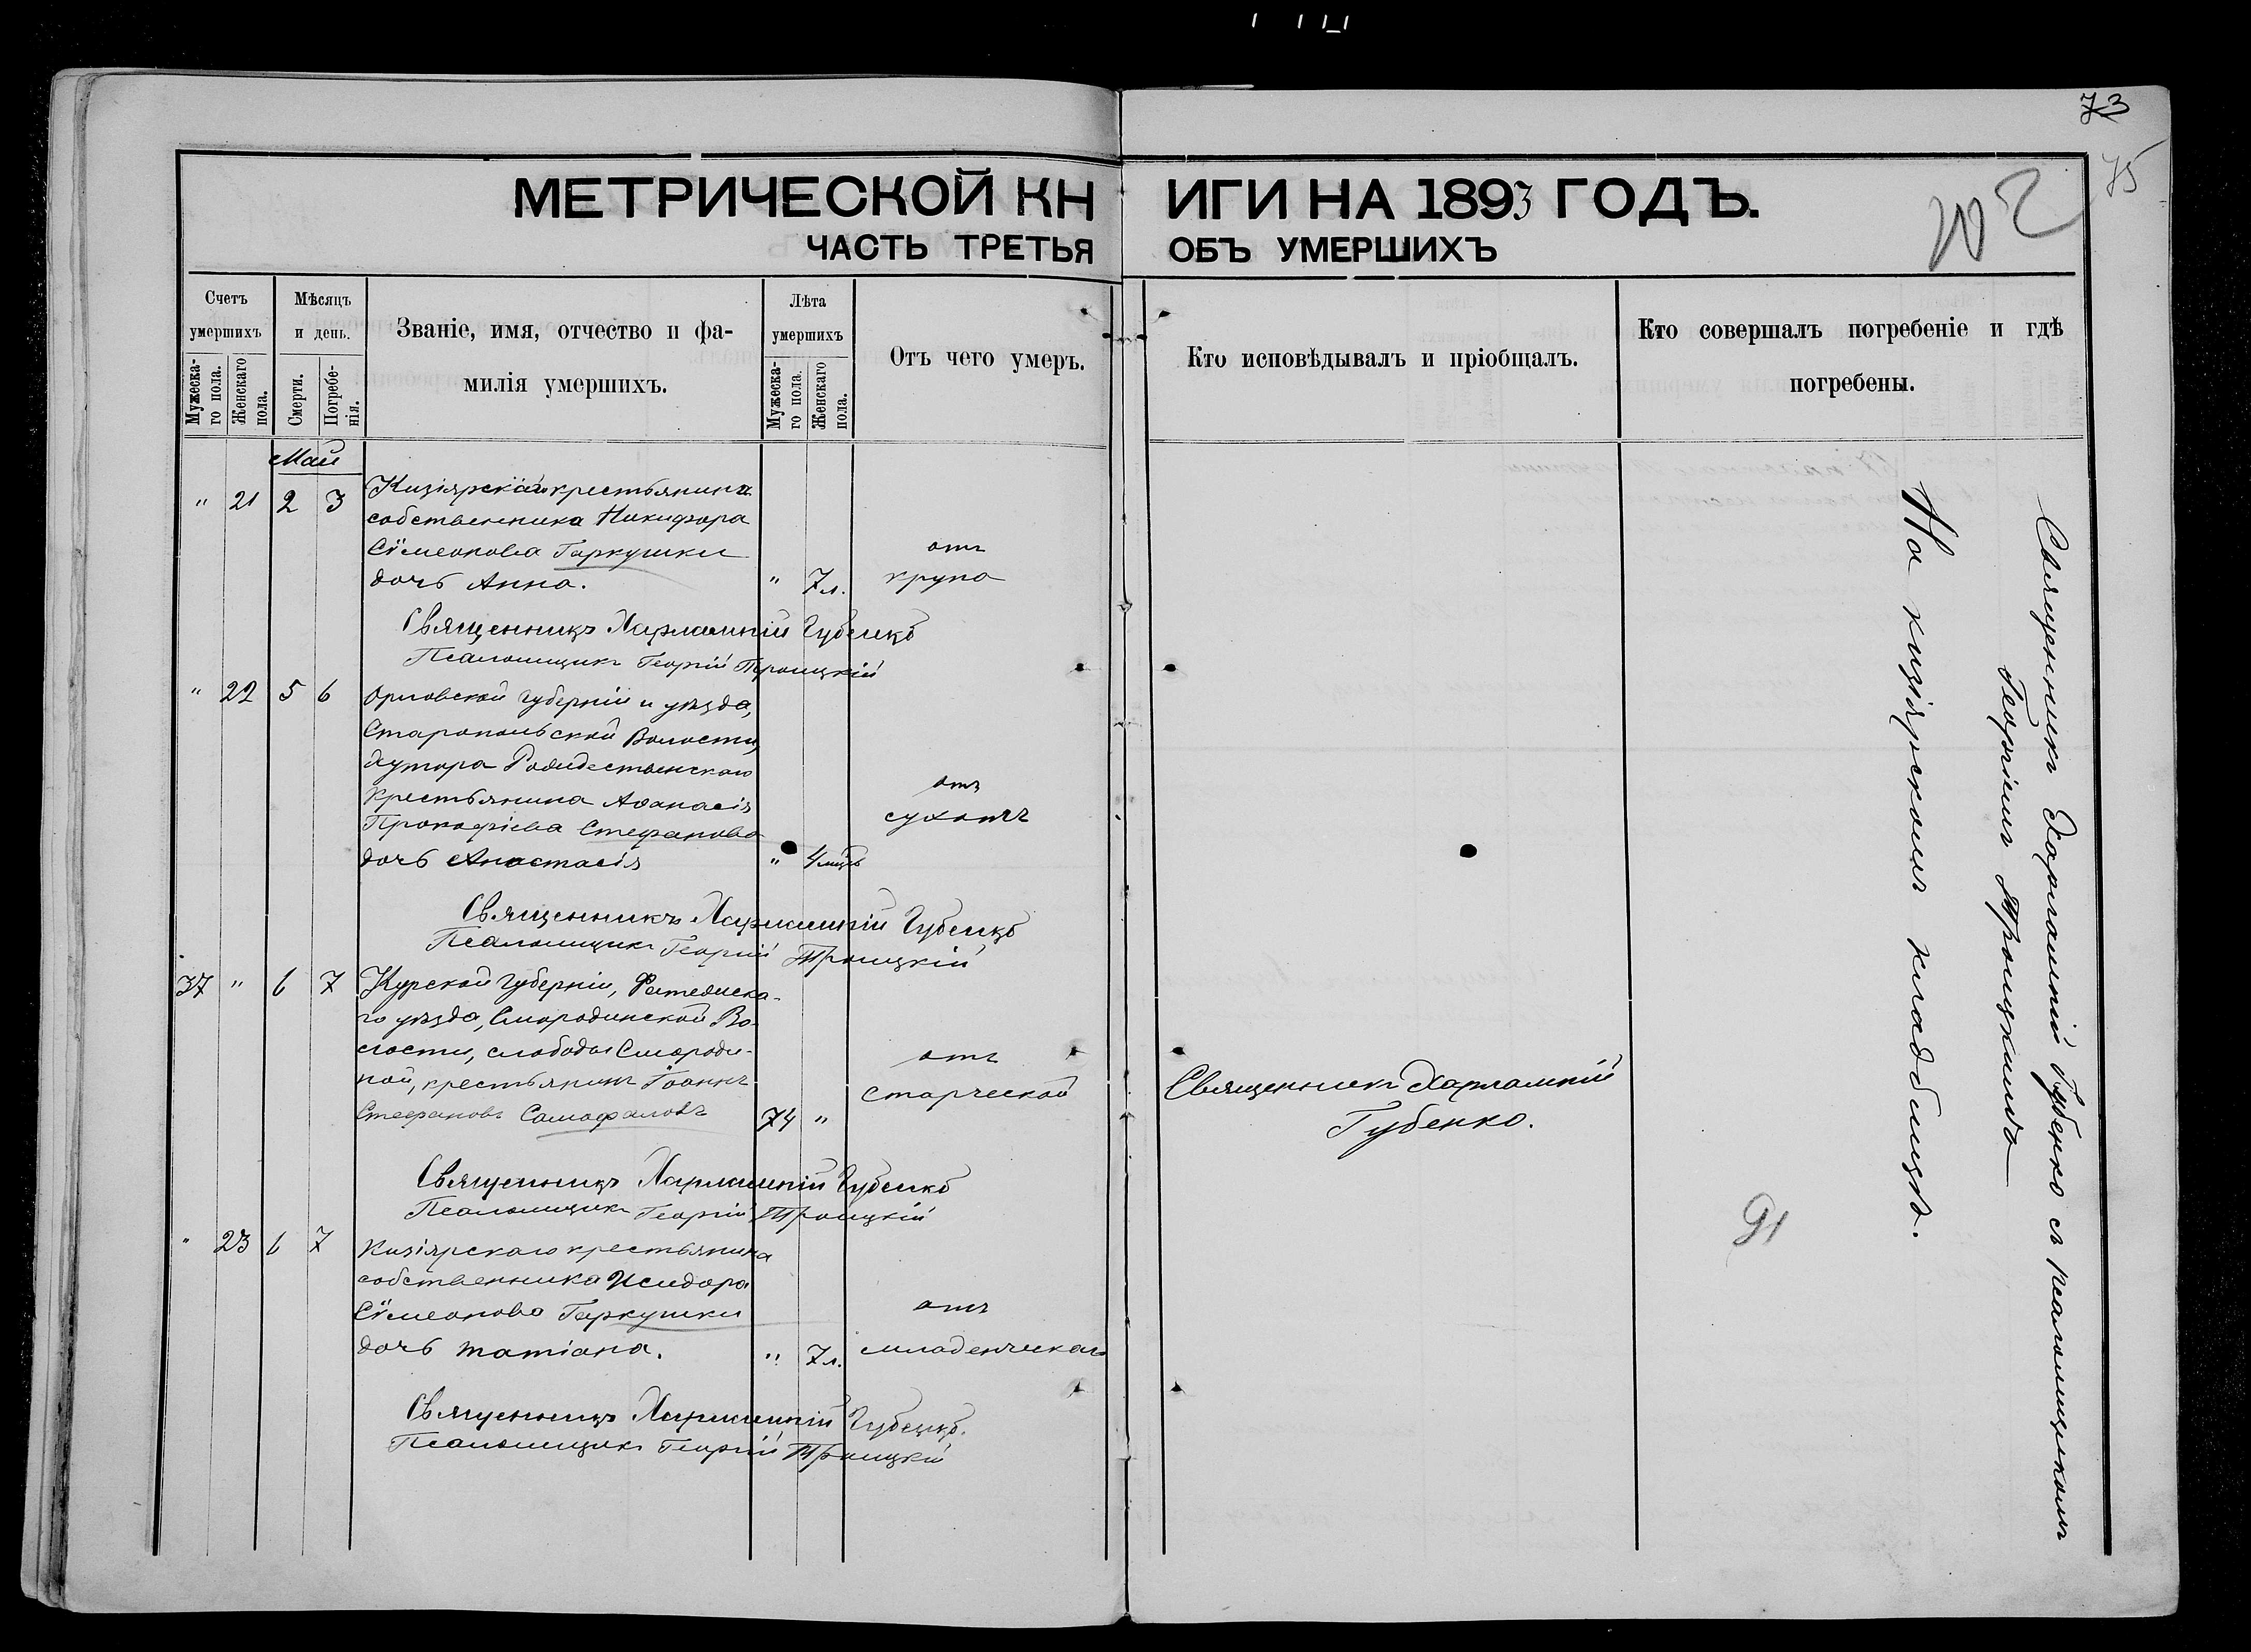 73
75
МЕТРИЧЕСКОЙ КНИГИ НА 1893 ГОДЪ.
ЧАСТЬ ТРЕТЬЯ ОБЪ УМЕРШИХЪ
Счетъ умершихъ
Мужескаго пола.
Женскаго пола.
Мѣсяцъ и день.
Смерти.
Погребенія.
Званіе, имя, отчество и фамилія умершихъ.
Лѣта умершихъ
Мужескаго пола.
Женскаго пола.
Отъ чего умеръ.
Кто исповѣдывалъ и пріобщалъ.
Кто совершалъ погребеніе и гдѣ погребены.
Май
" 21 2 3 Кизіярскаго крестьянина
собственника Никифора
Сѵмеонова Гаркушки
дочь Анна. " 7 л.
отъ
крупа
Священникъ Харлампій Губенко
Псаломщикъ Георгій Троицкій
" 22 5 6 Орловской губерніи и уѣзда,
Старопольской Волости,
хутора Рождественскаго
крестьянина Аѳанасія
Прокофіева Стефанова
дочь Анастасія " 4 мцъ
отъ
сухотъ
Священникъ Харлампій Губенко
Псаломщикъ Георгій Троицкій
37 " 6 7 Курской губерніи, Фатежска-
го уѣзда, Смородинской Во-
лости, слободы Смороди-
ной, крестьянинъ Іоаннъ
Стефановъ Самофаловъ 74 "
отъ
старческой
Священникъ Харлампій
Губенко.
Священникъ Харлампій Губенко
Псаломщикъ Георгій Троицкій
" 23 6 7 Кизіярскаго крестьянина
собственника Исидора
Сѵмеонова Гаркушки
дочь Татіана. " 7 л.
отъ
младенческаго
Священникъ Харлампій Губенко.
Псаломщикъ Георгій Троицкій
Священникъ Харлампій Губенко съ псаломщикомъ
Георгіемъ Троицкимъ
На кизіярскомъ кладбищѣ.
91